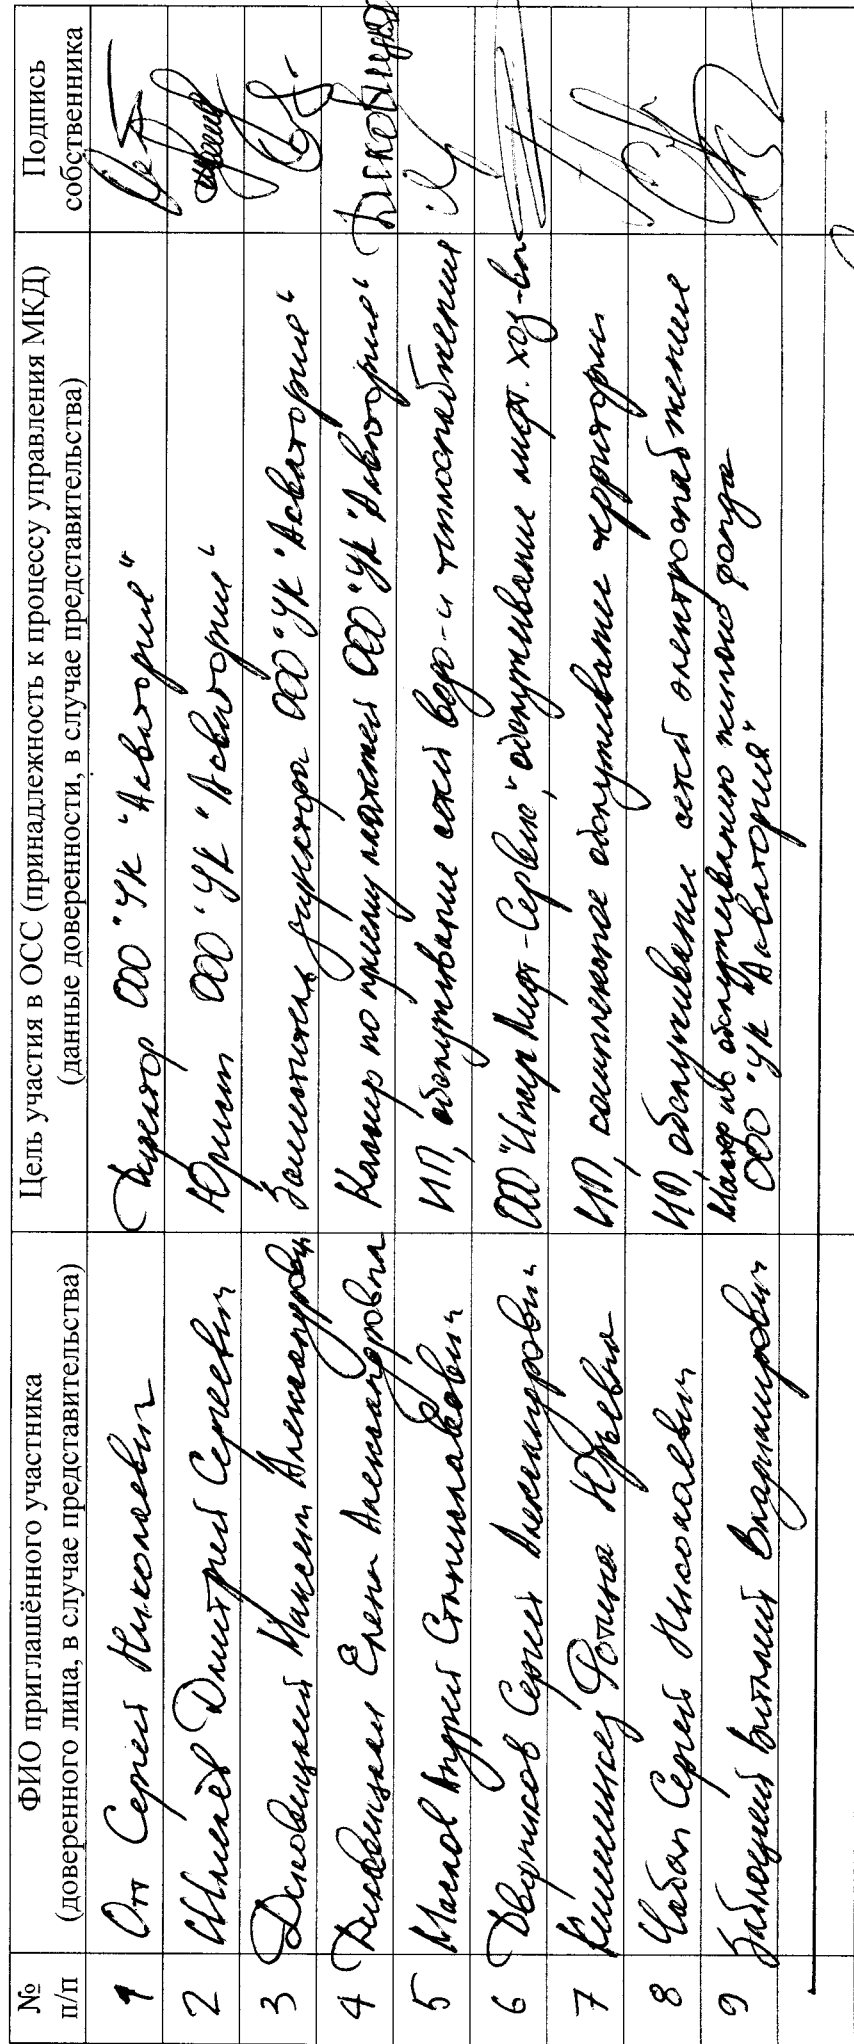 № п/п
ФИО приглашённого участника
(доверенного лица, в случае представительства)
Цель участия в ОСС (принадлежность к процессу управления МКД)
(данные доверенности, в случае представительства)
Подпись
собственника
1 Отт Сергей Николаевич Директор ООО "УК "Акватория"
2 Дмитрий Сергеевич Юрист ООО "УК "Акватория"
3 Максим Александрович Заместитель директора ООО "УК "Акватория"
4 Елена Александровна Кассир по приему платежей ООО "УК "Акватория"
5 Маслов Андрей Станиславович ИП, обслуживание сетей водо- и теплоснабжения
6 Дворников Сергей Александрович ООО "Интер Лифт-Сервис", обслуживание лифт. хоз-ва
7 Юрьевна ИП, комплексное обслуживание территории
8 Чабан Сергей Николаевич ИП, обслуживание сетей электроснабжения
9 Заблоцкий Виталий Владимирович Мастер по обслуживанию жилого фонда
ООО "УК "Акватория"